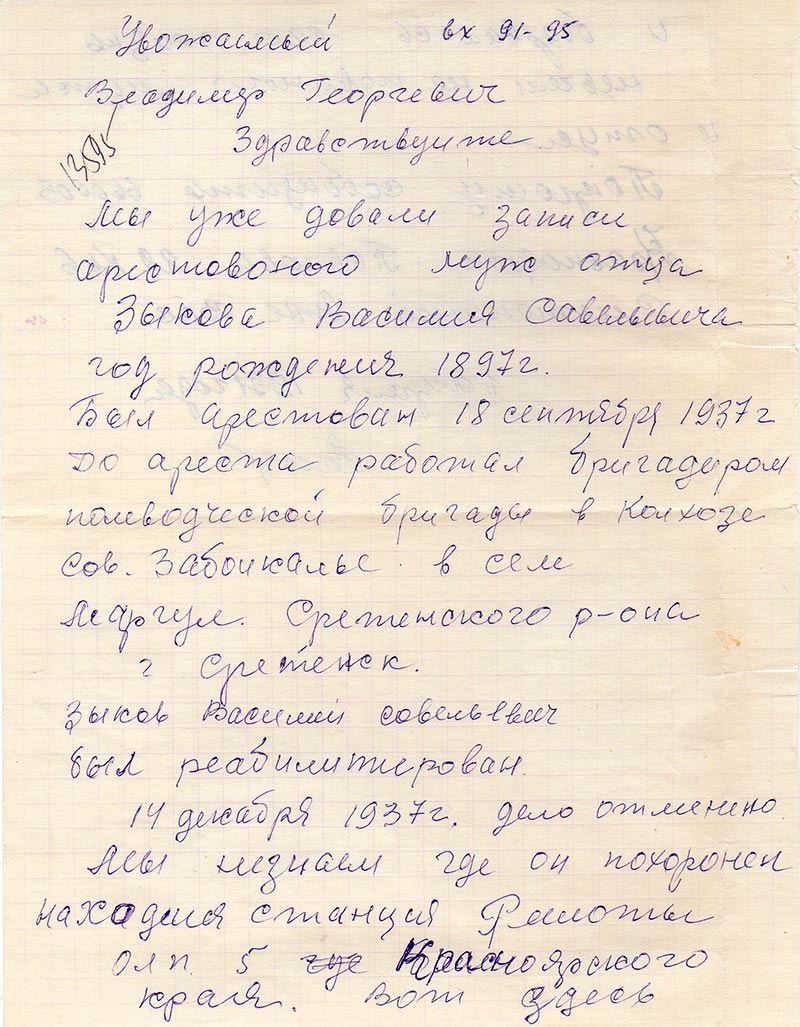 Уважаемый вх 91-95
Владимер Георгевич
13595
Здравствуйте
Мы уже довали записи
арестовоного муж отца
Зыкова Василия Савельевича
год рождения 1897г.
Был арестован 18 сентября 1937г
До ареста работал бригадиром
полеводческой бригады в Колхозе
Сов. Забойкалье. в сел
Сретенского р-она
г Сретенск.
Зыков Василий совельевич
был реабилитирован.
14 декабря 1937г. дело отменено.
Мы незнаем где он похоронен
находися станция
олп. 5 где Красноярского
края. Вот здесь